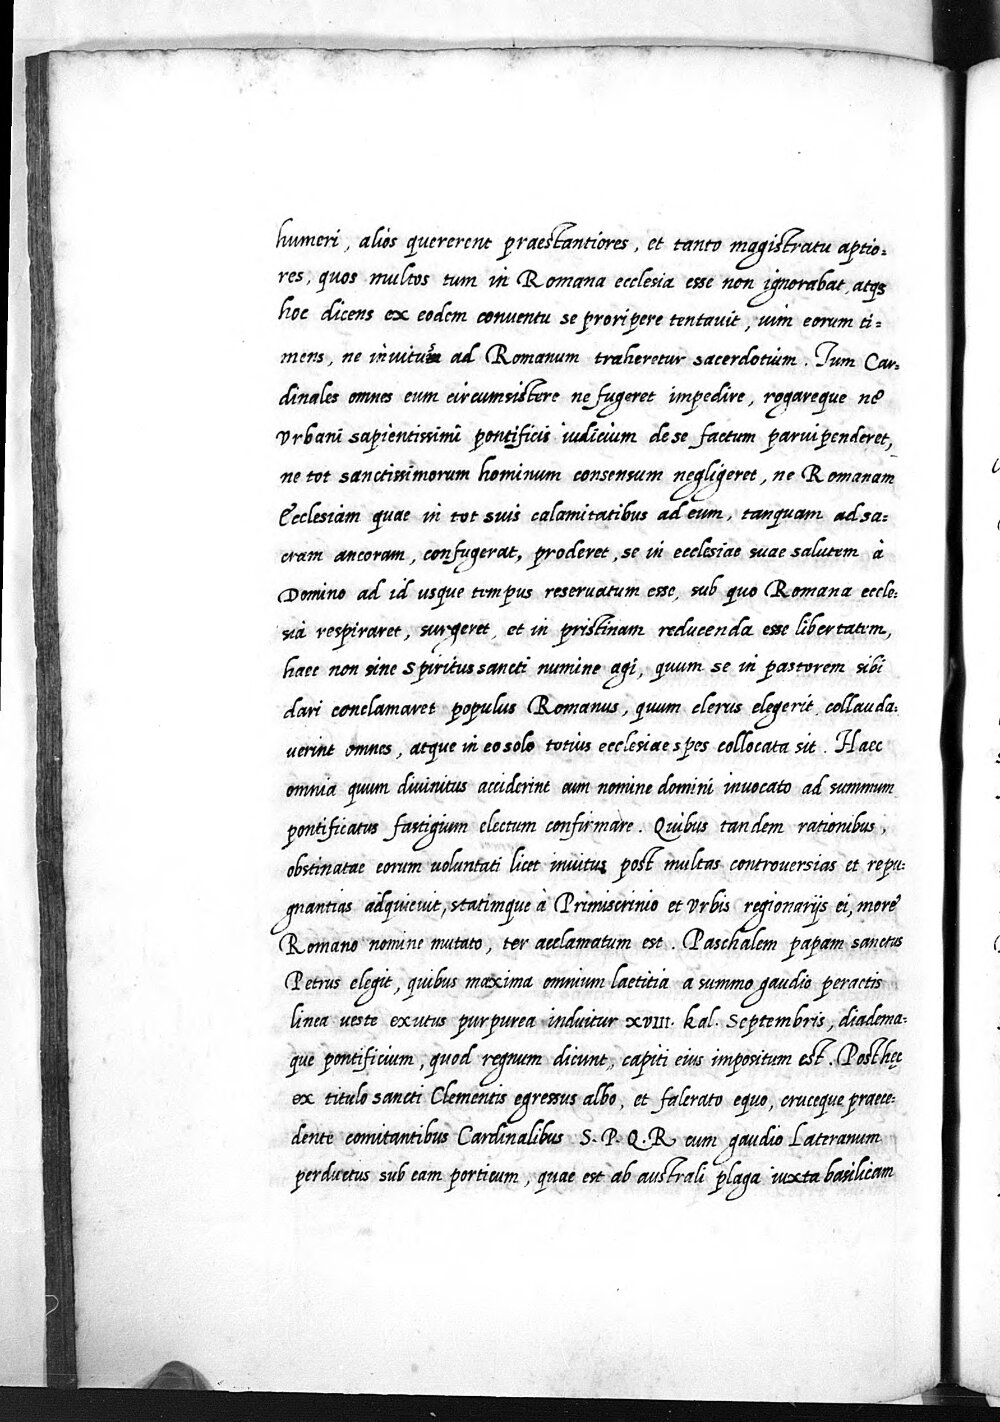 humeri, aliós quererent praestantiores, et tanto magistratu aptio=
res, quos multos tum in Romana ecclesia esse non ignorabat, atqs
hoc dicens ex eodem conventu se proripere tentavit, vim eorum ti=
mens, ne invitus ad Romanum traheretur sacerdotium. Tum Car=
dinales omnes eum circumsistere ne fugeret impedire, rogareque ne
Vrbani sapientissimi pontificis iudicium de se factum parvipenderet,
ne tot sanctissimorum hominum consensum negligeret, ne Romanam
Ecclesiam quae in tot suis calamitatibus ad eum, tanquam ad sa=
cram ancoram, confugerat, proderet, se in ecclesiae suae salutem à
Domino ad id usque tempus reservatum esse, sub quo Romana eccle=
sia respiraret, surgeret, et in pristinam reducenda esse libertatem,
haec non sine Spiritus sancti numine agi, quum se in pastorem sibi
dari conclamaret populus Romanus, quum clerus elegerit, collauda=
verint omnes, atque in eo solo totius ecclesiae spes collocata sit. Haec
omnia quum divinitus acciderint eum nomine domini invocato ad summum
pontificatus fastigium electum confirmare. Quibus tandem rationibus,
obstinatae eorum voluntati licet invitus post multas controversias et repu=
gnantias adquievit, statimque à Primiscrinio et Vrbis regionarijs ei, more
Romano nomine mutato, ter acclamatum est. Paschalem papam sanctus
Petrus elegit, quibus maxima omnium laetitia a summo gaudio peractis
linea veste exutus purpurea induitur XVIII. kal. Septembris, diadema=
que pontificium, quod regnum dicunt, capiti eius impositum est. Posthęc
ex titulo sancti Clementis egressus albo, et falerato equo, cruceque praece=
dente comitantibus Cardinalibus S. P. Q. R cum gaudio Lateranum
perductus sub eam porticum, quae est ab australi plaga iuxta basilicam